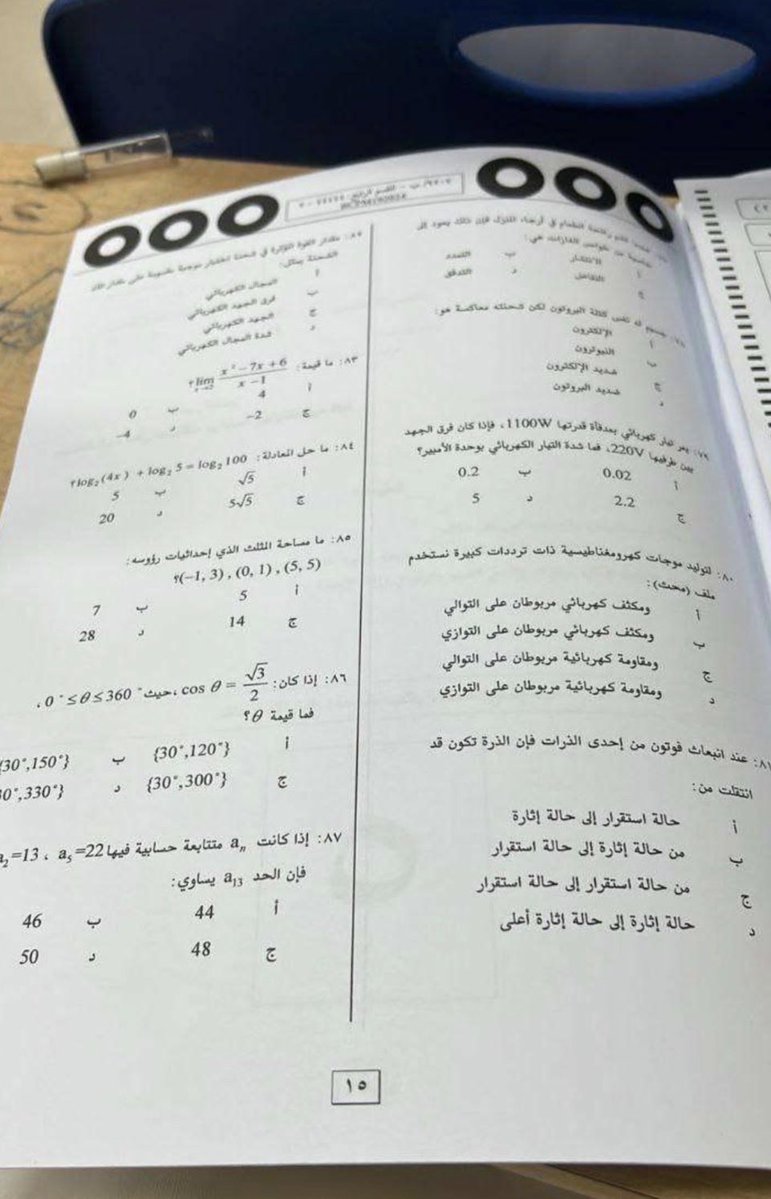 عندما تنتشر رائحة الطعام في أرجاء المنزل فإن ذلك يعود إلى
خاصية من خواص الغازات، هي:
أ الانتشار ب التمدد
ج التفاعل د التدفق
٧٨: جسيم له نفس كتلة البروتون لكن شحنته معاكسة هو:
أ الإلكترون
ب النيوترون
ج ضديد الإلكترون
د ضديد البروتون
٧٩: يمر تيار كهربائي بمدفأة قدرتها 1100W، فإذا كان فرق الجهد
بين طرفيها 220V، فما شدة التيار الكهربائي بوحدة الأمبير؟
أ 0.02 ب 0.2
ج 2.2 د 5
٨٠: لتوليد موجات كهرومغناطيسية ذات ترددات كبيرة نستخدم
ملف (محث):
أ ومكثف كهربائي مربوطان على التوالي
ب ومكثف كهربائي مربوطان على التوازي
ج ومقاومة كهربائية مربوطان على التوالي
د ومقاومة كهربائية مربوطان على التوازي
٨١: عند انبعاث فوتون من إحدى الذرات فإن الذرة تكون قد
انتقلت من:
أ حالة استقرار إلى حالة إثارة
ب من حالة إثارة إلى حالة استقرار
ج من حالة استقرار إلى حالة استقرار
د حالة إثارة إلى حالة إثارة أعلى
مقدار القوة المؤثرة في شحنة اختبار موجبة مقسومة على مقدار تلك
الشحنة يمثل:
أ المجال الكهربائي
ب فرق الجهد الكهربائي
ج الجهد الكهربائي
د شدة المجال الكهربائي
٨٣: ما قيمة: lim (x² − 7x + 6)/(x − 1) ؟
أ 4 ب 0
ج −2 د −4
٨٤: ما حل المعادلة: log₂(4x) + log₂ 5 = log₂ 100 ؟
أ √5 ب 5
ج 5√5 د 20
٨٥: ما مساحة المثلث الذي إحداثيات رؤوسه:
(−1, 3) , (0, 1) , (5, 5)؟
أ 5 ب 7
ج 14 د 28
٨٦: إذا كان: cos θ = √3/2، حيث 0° ≤ θ ≤ 360°،
فما قيمة θ؟
أ {30°,120°} ب {30°,150°}
ج {30°,300°} د 0°,330°}
٨٧: إذا كانت aₙ متتابعة حسابية فيها a₂=13 ، a₅=22
فإن الحد a₁₃ يساوي:
أ 44 ب 46
ج 48 د 50
١٥